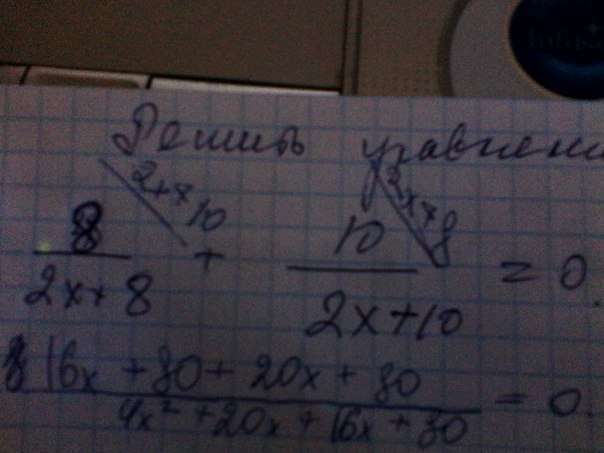 Решить уравнени
2x+10 2x+8
8/(2x+8) + 10/(2x+10) = 0.
(16x+80+20x+80)/(4x²+20x+16x+80) = 0.